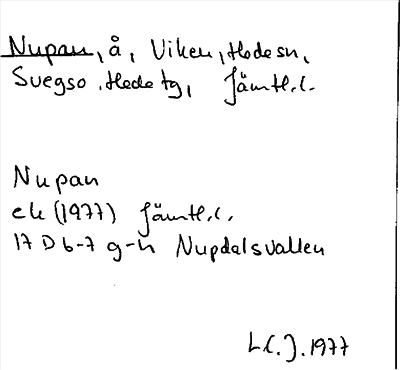 Nupan, å, Viken, Hede sn,
Svegs o. Hede tg, Jämtl.l.
Nupan
ek (1977) Jämtl.l.
17 D 6-7 g-h Nupdalsvallen
L.C.J. 1977